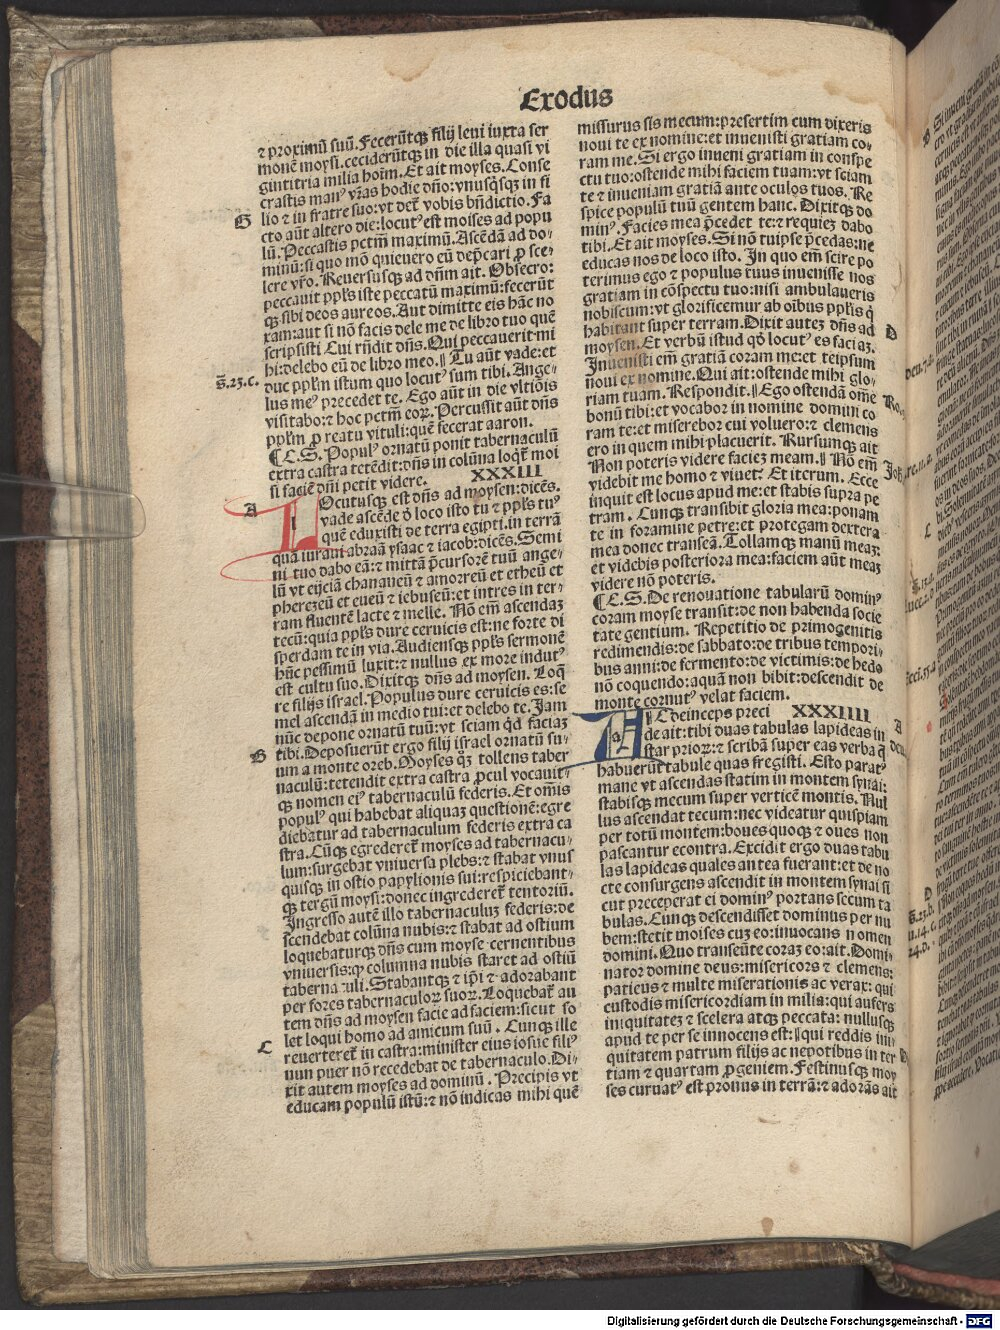 Exodus
⁊ proximū suū. Fecerūtqꝫ filij leui iuxta ser
monē moysi. ceciderūtqꝫ in die illa quasi vi
gintitria milia hoīm. Et ait moyses. Conse
crastis manꝰ vr̄as hodie dño: vnusq̄sqꝫ in fi
lio ⁊ in fratre suo: vt det̄ vobis bñdictio. Fa
cto aūt altero die: locutꝰ est moises ad popu
lū. Peccastis pctm̄ maximū. Ascendā ad do-
minū: si quo mō quieuero eū dep̄cari ꝓ sce-
lere vr̄o. Reuersusqꝫ ad dñm ait. Obsecro:
peccauit ppl̄s iste peccatū maximū: fecerūt
qꝫ sibi deos aureos. Aut dimitte eis hāc no
xam: aut si nō facis dele me de libro tuo quē
scripsisti Cui rñdit dñs. Qui peccauerit mi
hi: delebo eū de libro meo. Tu aūt vade: et
duc ppl̄m istum quo locutꝰ sum tibi. Ange-
lus meꝰ precedet te. Ego aūt in die vltiōis
visitabo: ⁊ hoc pctm̄ eoꝝ. Percussit aūt dñs
ppl̄m ꝓ reatu vituli: quē fecerat aaron.
¶ C. S. Populꝰ ornatū ponit tabernaculū
extra castra tetēdit: dñs in colūna loqt̄ moi
si faciē dñi petit videre. XXXIII
G
g̅.23.c.
A
LOcutusqꝫ est dñs ad moysen: dicēs.
vade ascēde d̄ loco isto tu ⁊ ppl̄s tuꝰ
quē eduxisti de terra egipti. in terrā
quā iuraui abraā ysaac ⁊ iacob: dicēs. Semi
ni tuo dabo eā: ⁊ mittā p̄cursorē tuū ange-
lū vt eijciā chananeū ⁊ amorreū et etheū et
pherezeū et eueū ⁊ iebuseū: et intres in ter-
ram fluentē lacte ⁊ melle. Nō em̄ ascendaꝫ
tecū: quia ppl̄s dure ceruicis est: ne forte di
sperdam te in via. Audiensqꝫ ppl̄s sermonē
hūc pessimū luxit: ⁊ nullus ex more indutꝰ
est cultu suo. Dixitqꝫ dñs ad moysen. Loq̄
re filijs israel. Populus dure ceruicis es: se
mel ascendā in medio tui: et delebo te. Jam
nūc depone ornatū tuū: vt sciam qd̄ faciaꝫ
tibi. Deposuerūt ergo filij israel ornatū su-
um a monte oreb. Moyses qꝫ tollens taber
naculū: tetendit extra castra ꝓcul vocauit-
qꝫ nomen eiꝰ tabernaculū federis. Et om̄is
populꝰ qui habebat aliquaꝫ questionē: egre
diebatur ad tabernaculum federis extra ca
stra. Cūqꝫ egrederet̄ moyses ad tabernacu-
lum: surgebat vniuersa plebs: ⁊ stabat vnus
quisqꝫ in ostio papylionis sui: respiciebant-
qꝫ tergū moysi: donec ingrederet̄ tentoriū.
Ingresso autē illo tabernaculuꝫ federis: de
scendebat colūna nubis: ⁊ stabat ad ostium
loquebaturqꝫ dñs cum moyse cernentibus
vniuersis: ꝙ columna nubis staret ad ostiū
tabernaculi. Stabantqꝫ ⁊ ip̄i ⁊ adorabant
per fores tabernaculoꝝ suoꝝ. Loquebat̄ au
tem dñs ad moysen facie ad faciem: sicut so
let loqui homo ad amicum suū. Cunqꝫ ille
reuerteret̄ in castra: minister eius iosue filiꝰ
nun puer nō recedebat de tabernaculo. Di-
xit autem moyses ad dominū. Precipis vt
educam populū istū: ⁊ nō indicas mihi quē
B
C
missurus sis mecum: presertim cum dixeris
noui te ex nomine: et inuenisti gratiam co-
ram me. Si ergo inueni gratiam in conspe
ctu tuo: ostende mihi faciem tuam: vt sciam
te ⁊ inueniam gratiā ante oculos tuos. Re
spice populū tuū gentem hanc. Dixitqꝫ do
minꝰ. Facies mea p̄cedet te: ⁊ requiez dabo
tibi. Et ait moyses. Si nō tuipse p̄cedas: ne
educas nos de loco isto. In quo em̄ scire po
terimus ego ⁊ populus tuus inuenisse nos
gratiam in cōspectu tuo: nisi ambulaueris
nobiscum: vt glorificemur ab oībus ppl̄is q̄
habitant super terram. Dixit autez dñs ad
moysen. Et verbū istud qd̄ locutꝰ es faciaꝫ.
Inuenisti em̄ gratiā coram me: et teipsum
noui ex nomine. Qui ait: ostende mihi glo-
riam tuam. Respondit. Ego ostendā om̄e
bonū tibi: et vocabor in nomine domini co
ram te: et miserebor cui voluero: ⁊ clemens
ero in quem mihi placuerit. Rursumqꝫ ait
Non poteris videre faciez meam. Nō em̄
videbit me homo ⁊ viuet. Et iterum. Ecce
inquit est locus apud me: et stabis supra pe
tram. Cunqꝫ transibit gloria mea: ponam
te in foramine petre: et protegam dextera
mea donec transeā. Tollamqꝫ manū meaꝫ:
et videbis posteriora mea: faciem aūt meaꝫ
videre nō poteris.
¶ C. S. De renouatione tabularū dominꝰ
coram moyse transit: de non habenda socie
tate gentium. Repetitio de primogenitis
redimendis: de sabbato: de tribus tempori-
bus anni: de fermento: de victimis: de hedo
nō coquendo: aquā non bibit: descendit de
monte cornutꝰ velat faciem.
D
AC deinceps preci XXXIIII
de ait: tibi duas tabulas lapideas in
star prioꝝ: ⁊ scribā super eas verba q̄
habuerūt tabule quas fregisti. Esto paratꝰ
mane vt ascendas statim in montem synai:
stabisqꝫ mecum super verticē montis. Nul
lus ascendat tecum: nec videatur quispiam
per totū montem: boues quoqꝫ ⁊ oues non
pascantur econtra. Excidit ergo duas tabu
las lapideas quales antea fuerant: et de no
cte consurgens ascendit in montem synai si
cut preceperat ei dominꝰ portans secum ta
bulas. Cunqꝫ descendisset dominus per nu
bem: stetit moises cuꝫ eo: inuocans nomen
domini. Quo transeūte coraꝫ eo: ait. Domi-
nator domine deus: misericors ⁊ clemens:
patiens ⁊ multe miserationis ac verax: qui
custodis misericordiam in milia: qui aufers
iniquitateꝫ ⁊ scelera atqꝫ peccata: nullusqꝫ
apud te per se innocens est: qui reddis ini-
quitatem patrum filijs ac nepotibus in ter
tiam ⁊ quartam ꝓgeniem. Festinusqꝫ moy
ses curuatꝰ est pronus in terrā: ⁊ adorās ait
A
Digitalisierung gefördert durch die Deutsche Forschungsgemeinschaft - DFG